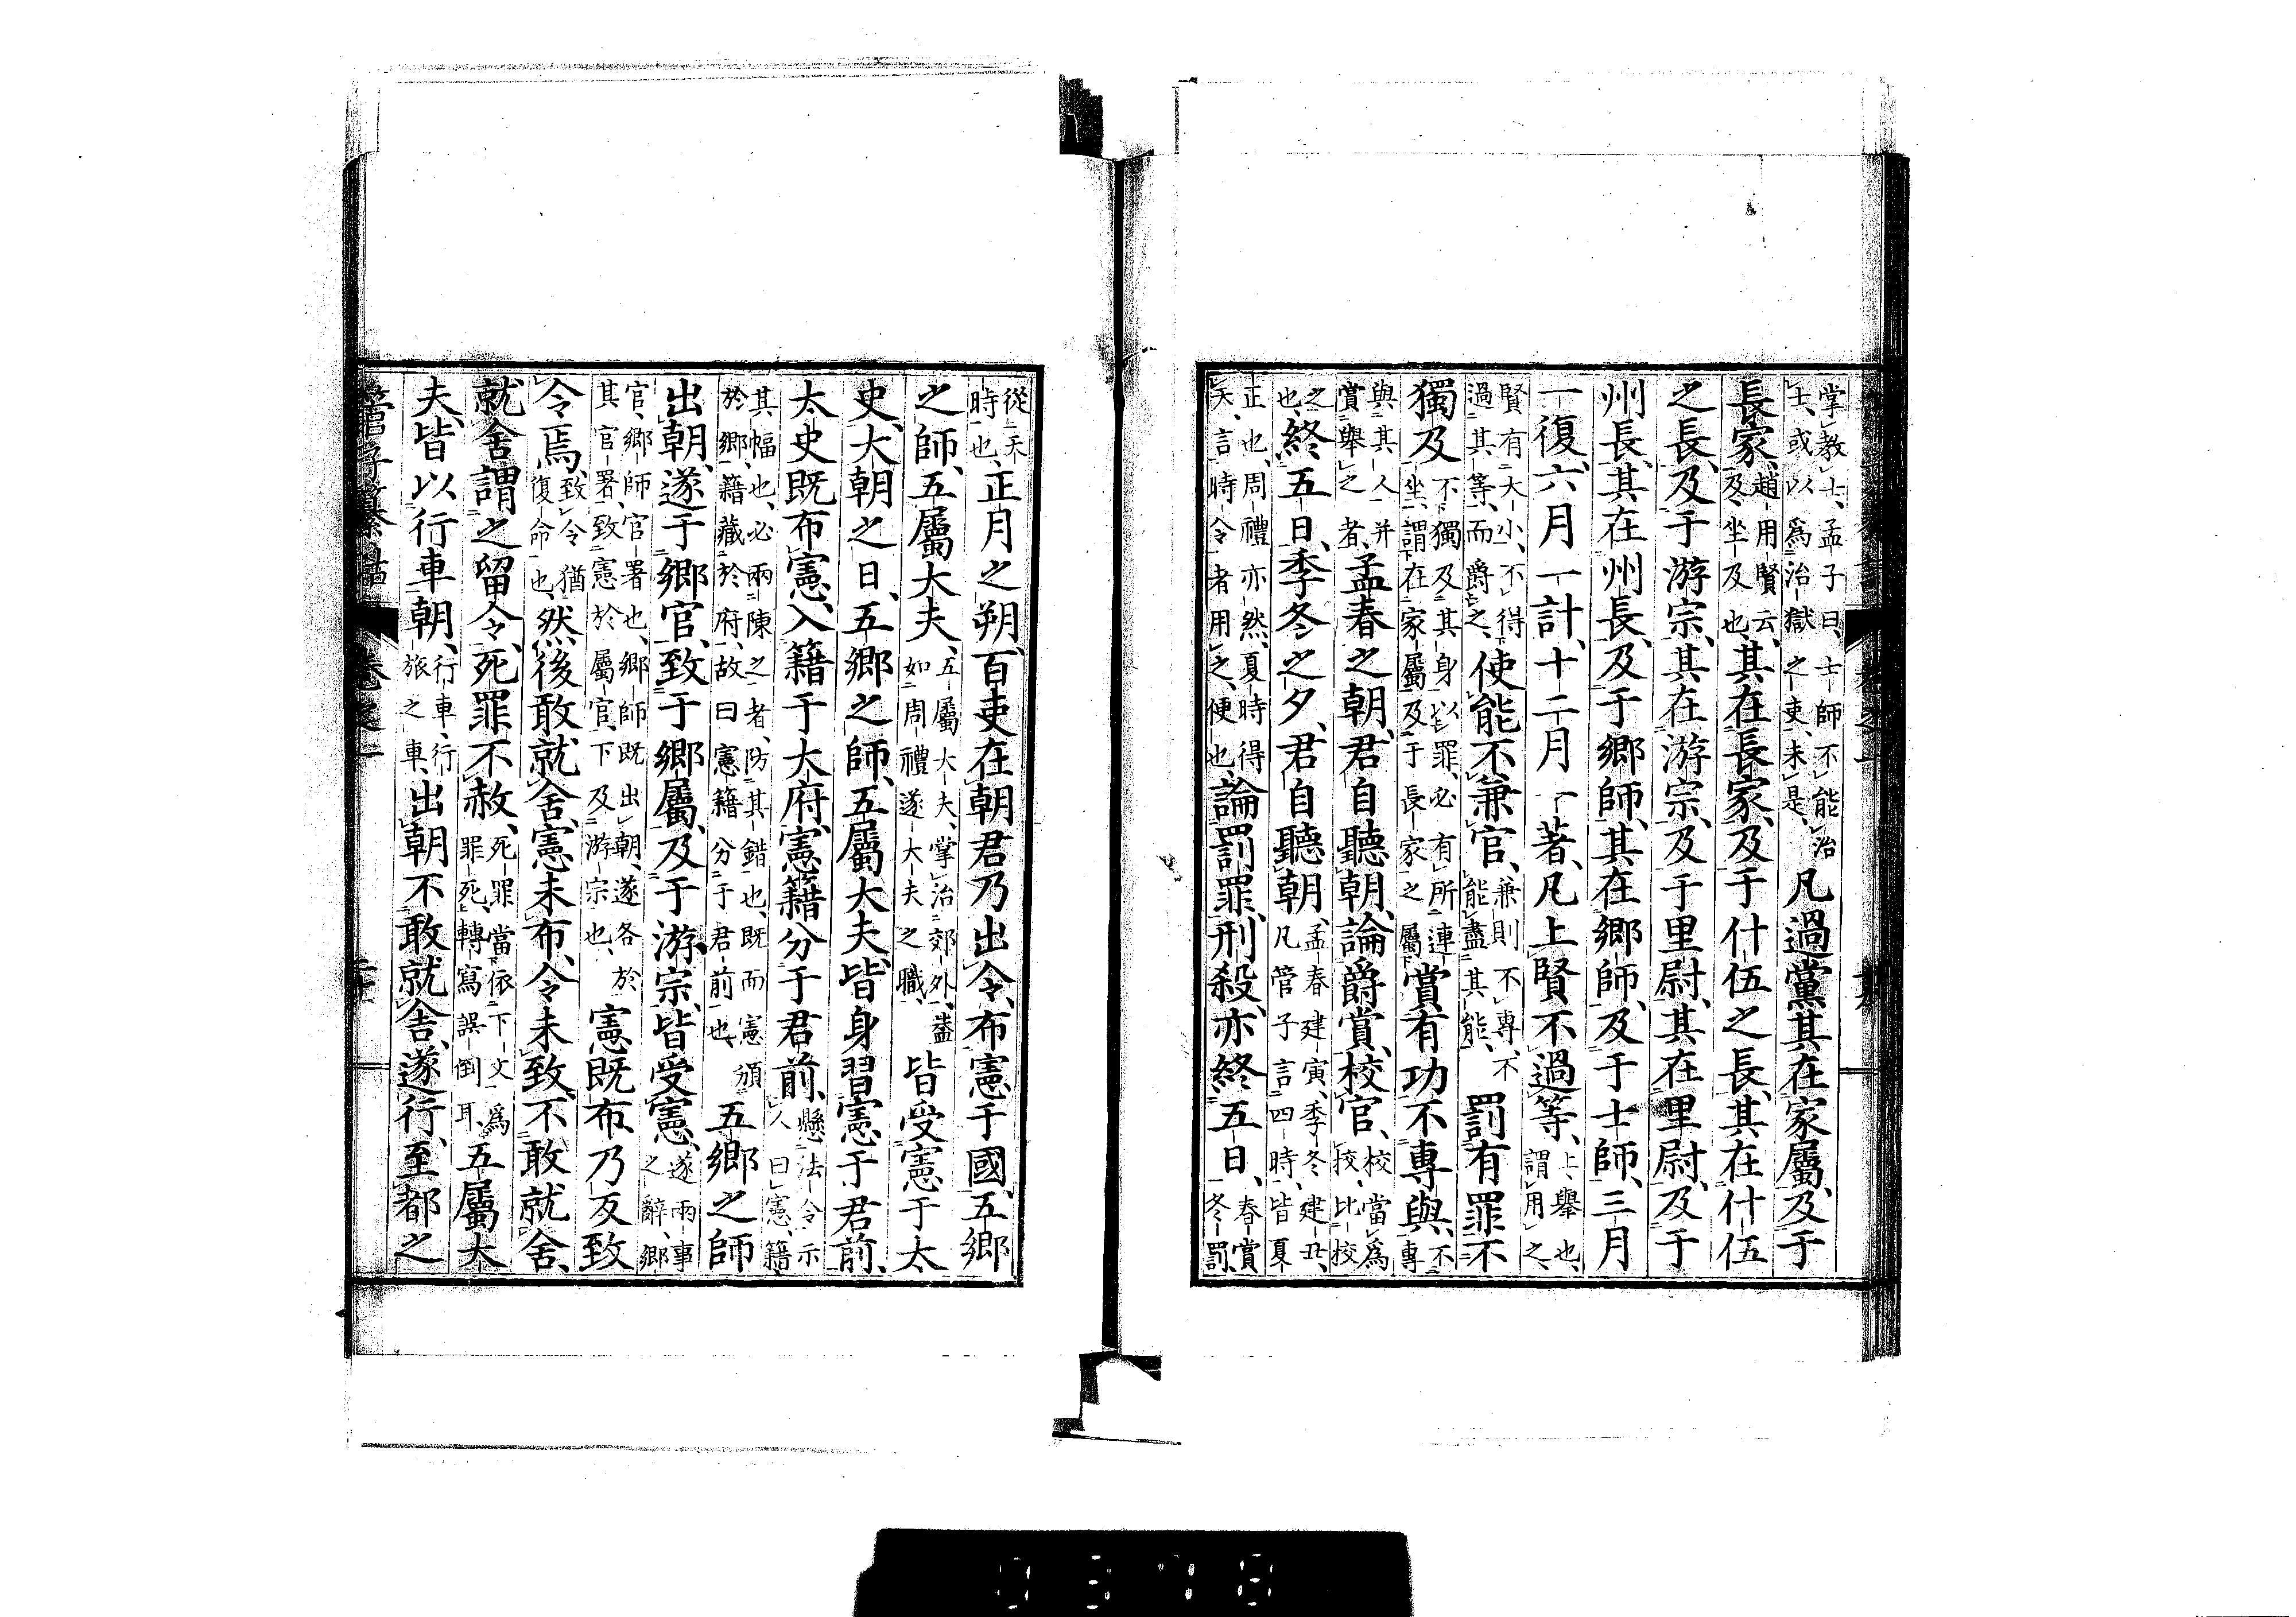 掌教士、孟子曰、士師不能治
士、或以為治獄之吏、未是、凡過黨其在家屬、及于
長家、趙用賢云、及坐及也、其在長家、及于什伍之長、其在什伍
之長、及于游宗、其在游宗、及于里尉、其在里尉、及于
州長、其在州長、及于鄉師、其在鄉師、及于士師、三月
一復、六月一計、十二月一著、凡上賢不過等、上舉也、謂用之、
賢有大小、不得過其等、而爵之、使能不兼官、兼則不專、不能盡其能、罰有罪不
獨及、不獨及其身以罪、必有所連坐、謂在家屬及于長家之屬、賞有功不專與、不專
與其人、并賞舉之者、孟春之朝、君自聽朝、論爵賞、校官、校當為校、比校
之也、終五日、季冬之夕、君自聽朝、孟春建寅、季冬建丑、凡管子言四時、皆夏
正也、周禮亦然、夏時得天、言時令者用之、便也、論罰罪、刑殺、亦終五日、春賞冬罰、
從天時也、正月之朔、百吏在朝、君乃出令、布憲于國、五鄉
之師、五屬大夫、五屬大夫、掌治郊外、蓋如周禮遂大夫之職、皆受憲于太
史、大朝之日、五鄉之師、五屬大夫、皆身習憲于君前、
太史既布憲、入籍于大府、憲籍分于君前、懸法令示人曰憲、籍
其幅也、必兩陳之者、防其錯也、既而憲頒於鄉、籍藏於府、故曰憲籍分于君前也、五鄉之師
出朝、遂于鄉官、致于鄉屬、及于游宗、皆受憲、遂兩事之辭、鄉
官、鄉師官署也、鄉師既出朝、遂各於其官署、致憲於屬官、下及游宗也、憲既布、乃反致
令焉、致令猶復命也、然後敢就舍、憲未布、令未致、不敢就舍、
就舍謂之留令、死罪不赦、死罪當依下文為罪死、轉寫誤倒耳、五屬大
夫、皆以行車朝、行車、行旅之車、出朝不敢就舍、遂行、至都之
管子纂詁 卷之一